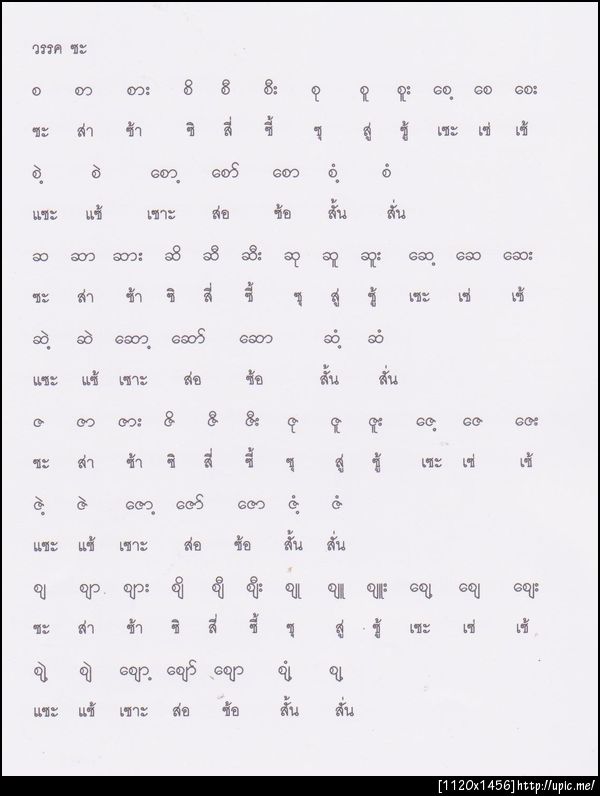 วรรค ซะ
စ စာ စား စိ စီ စီး စု စူ စူး စေ့ စေ စေး
ซะ ส่า ซ้า ซิ สี่ ซี้ ซุ สู่ ซู้ เซะ เซ่ เซ้
စဲ့ စဲ စော့ စော် စော စံ့ စံ
แซะ แซ้ เซาะ ส่อ ซ้อ สั้น สั่น
ဆ ဆာ ဆား ဆိ ဆီ ဆီး ဆု ဆူ ဆူး ဆေ့ ဆေ ဆေး
ซะ ส่า ซ้า ซิ สี่ ซี้ ซุ สู่ ซู้ เซะ เซ่ เซ้
ဆဲ့ ဆဲ ဆော့ ဆော် ဆော ဆံ့ ဆံ
แซะ แซ้ เซาะ ส่อ ซ้อ สั้น สั่น
ဇ ဇာ ဇား ဇိ ဇီ ဇီး ဇု ဇူ ဇူး ဇေ့ ဇေ ဇေး
ซะ ส่า ซ้า ซิ สี่ ซี้ ซุ สู่ ซู้ เซะ เซ่ เซ้
ဇဲ့ ဇဲ ဇော့ ဇော် ဇော ဇံ့ ဇံ
แซะ แซ้ เซาะ ส่อ ซ้อ สั้น สั่น
ဈ ဈာ ဈား ဈိ ဈီ ဈီး ဈု ဈူ ဈူး ဈေ့ ဈေ ဈေး
ซะ ส่า ซ้า ซิ สี่ ซี้ ซุ สู่ ซู้ เซะ เซ่ เซ้
ဈဲ့ ဈဲ ဈော့ ဈော် ဈော ဈံ့ ဈ့
แซะ แซ้ เซาะ ส่อ ซ้อ สั้น สั่น
[1120x1456]http://upic.me/